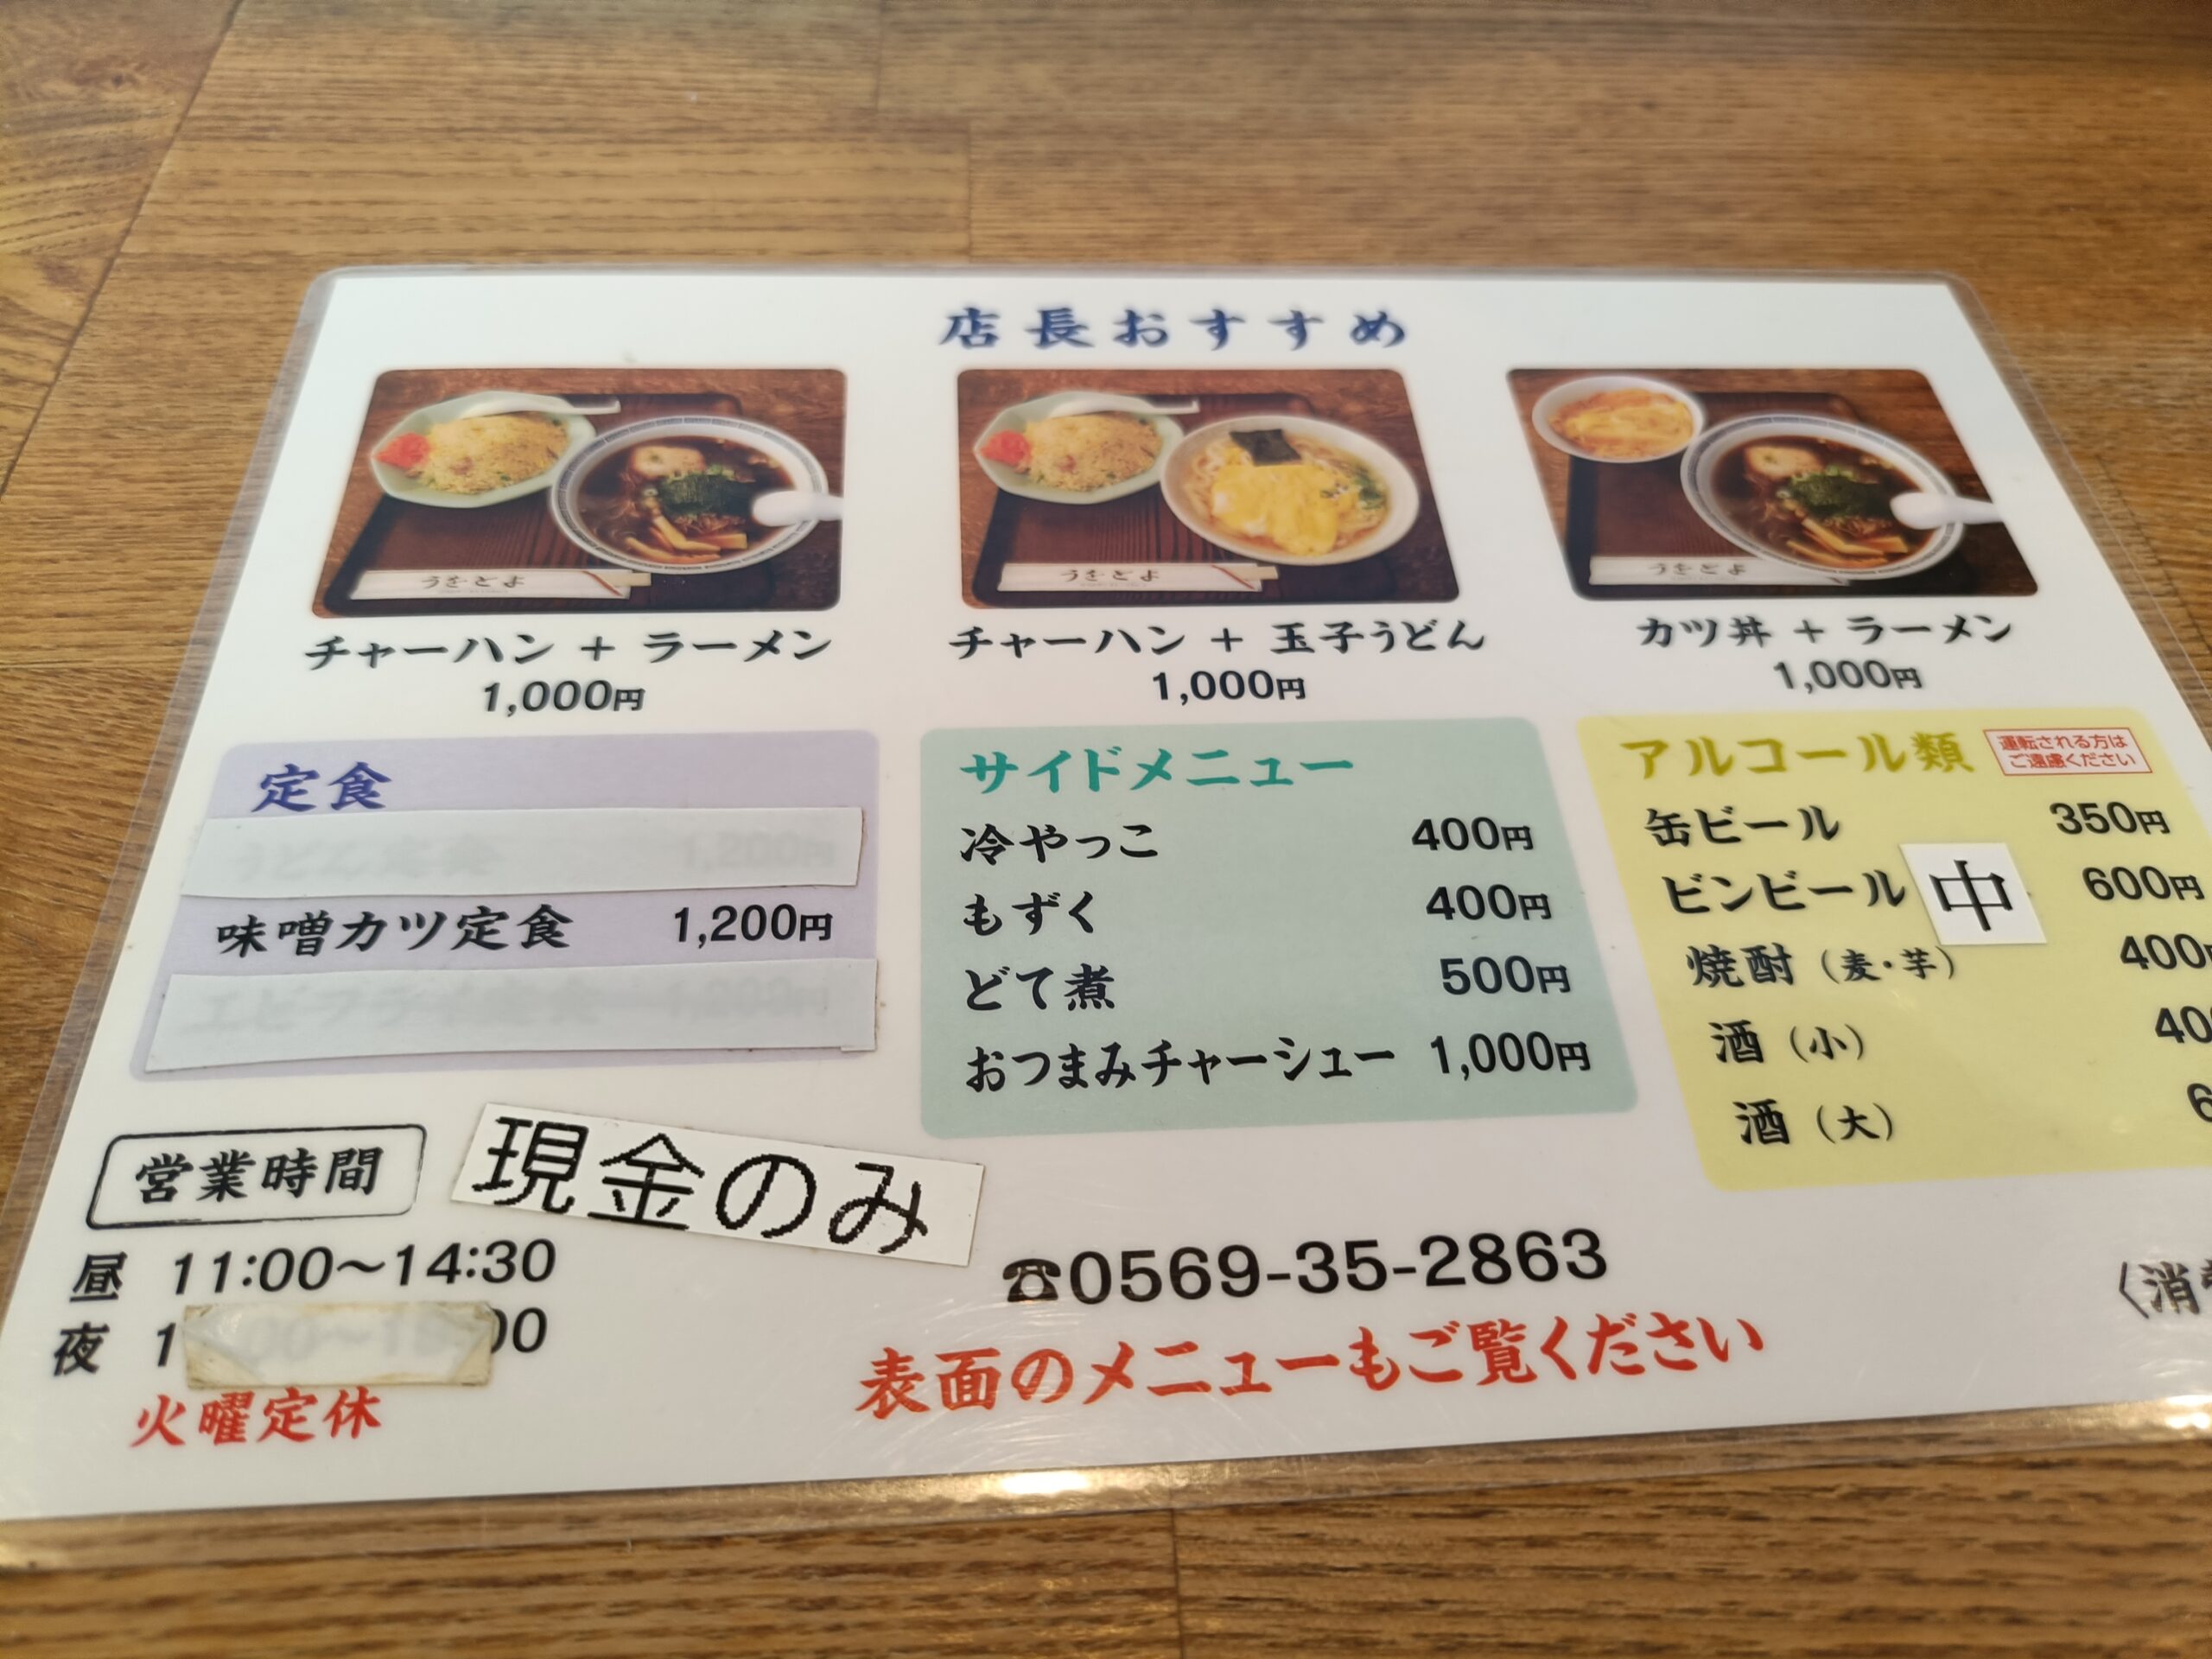 店長おすすめ
うをとよ
うをとよ
うをとよ
チャーハン + ラーメン
1,000円
チャーハン + 玉子うどん
1,000円
カツ丼 + ラーメン
1,000円
定食
味噌カツ定食 1,200円
サイドメニュー
冷やっこ 400円
もずく 400円
どて煮 500円
おつまみチャーシュー 1,000円
アルコール類
運転される方は
ご遠慮ください
缶ビール 350円
ビンビール 中 600円
焼酎（麦・芋） 400
酒（小）
酒（大）
営業時間
現金のみ
昼 11:00～14:30
夜
火曜定休
☎0569-35-2863
表面のメニューもご覧ください